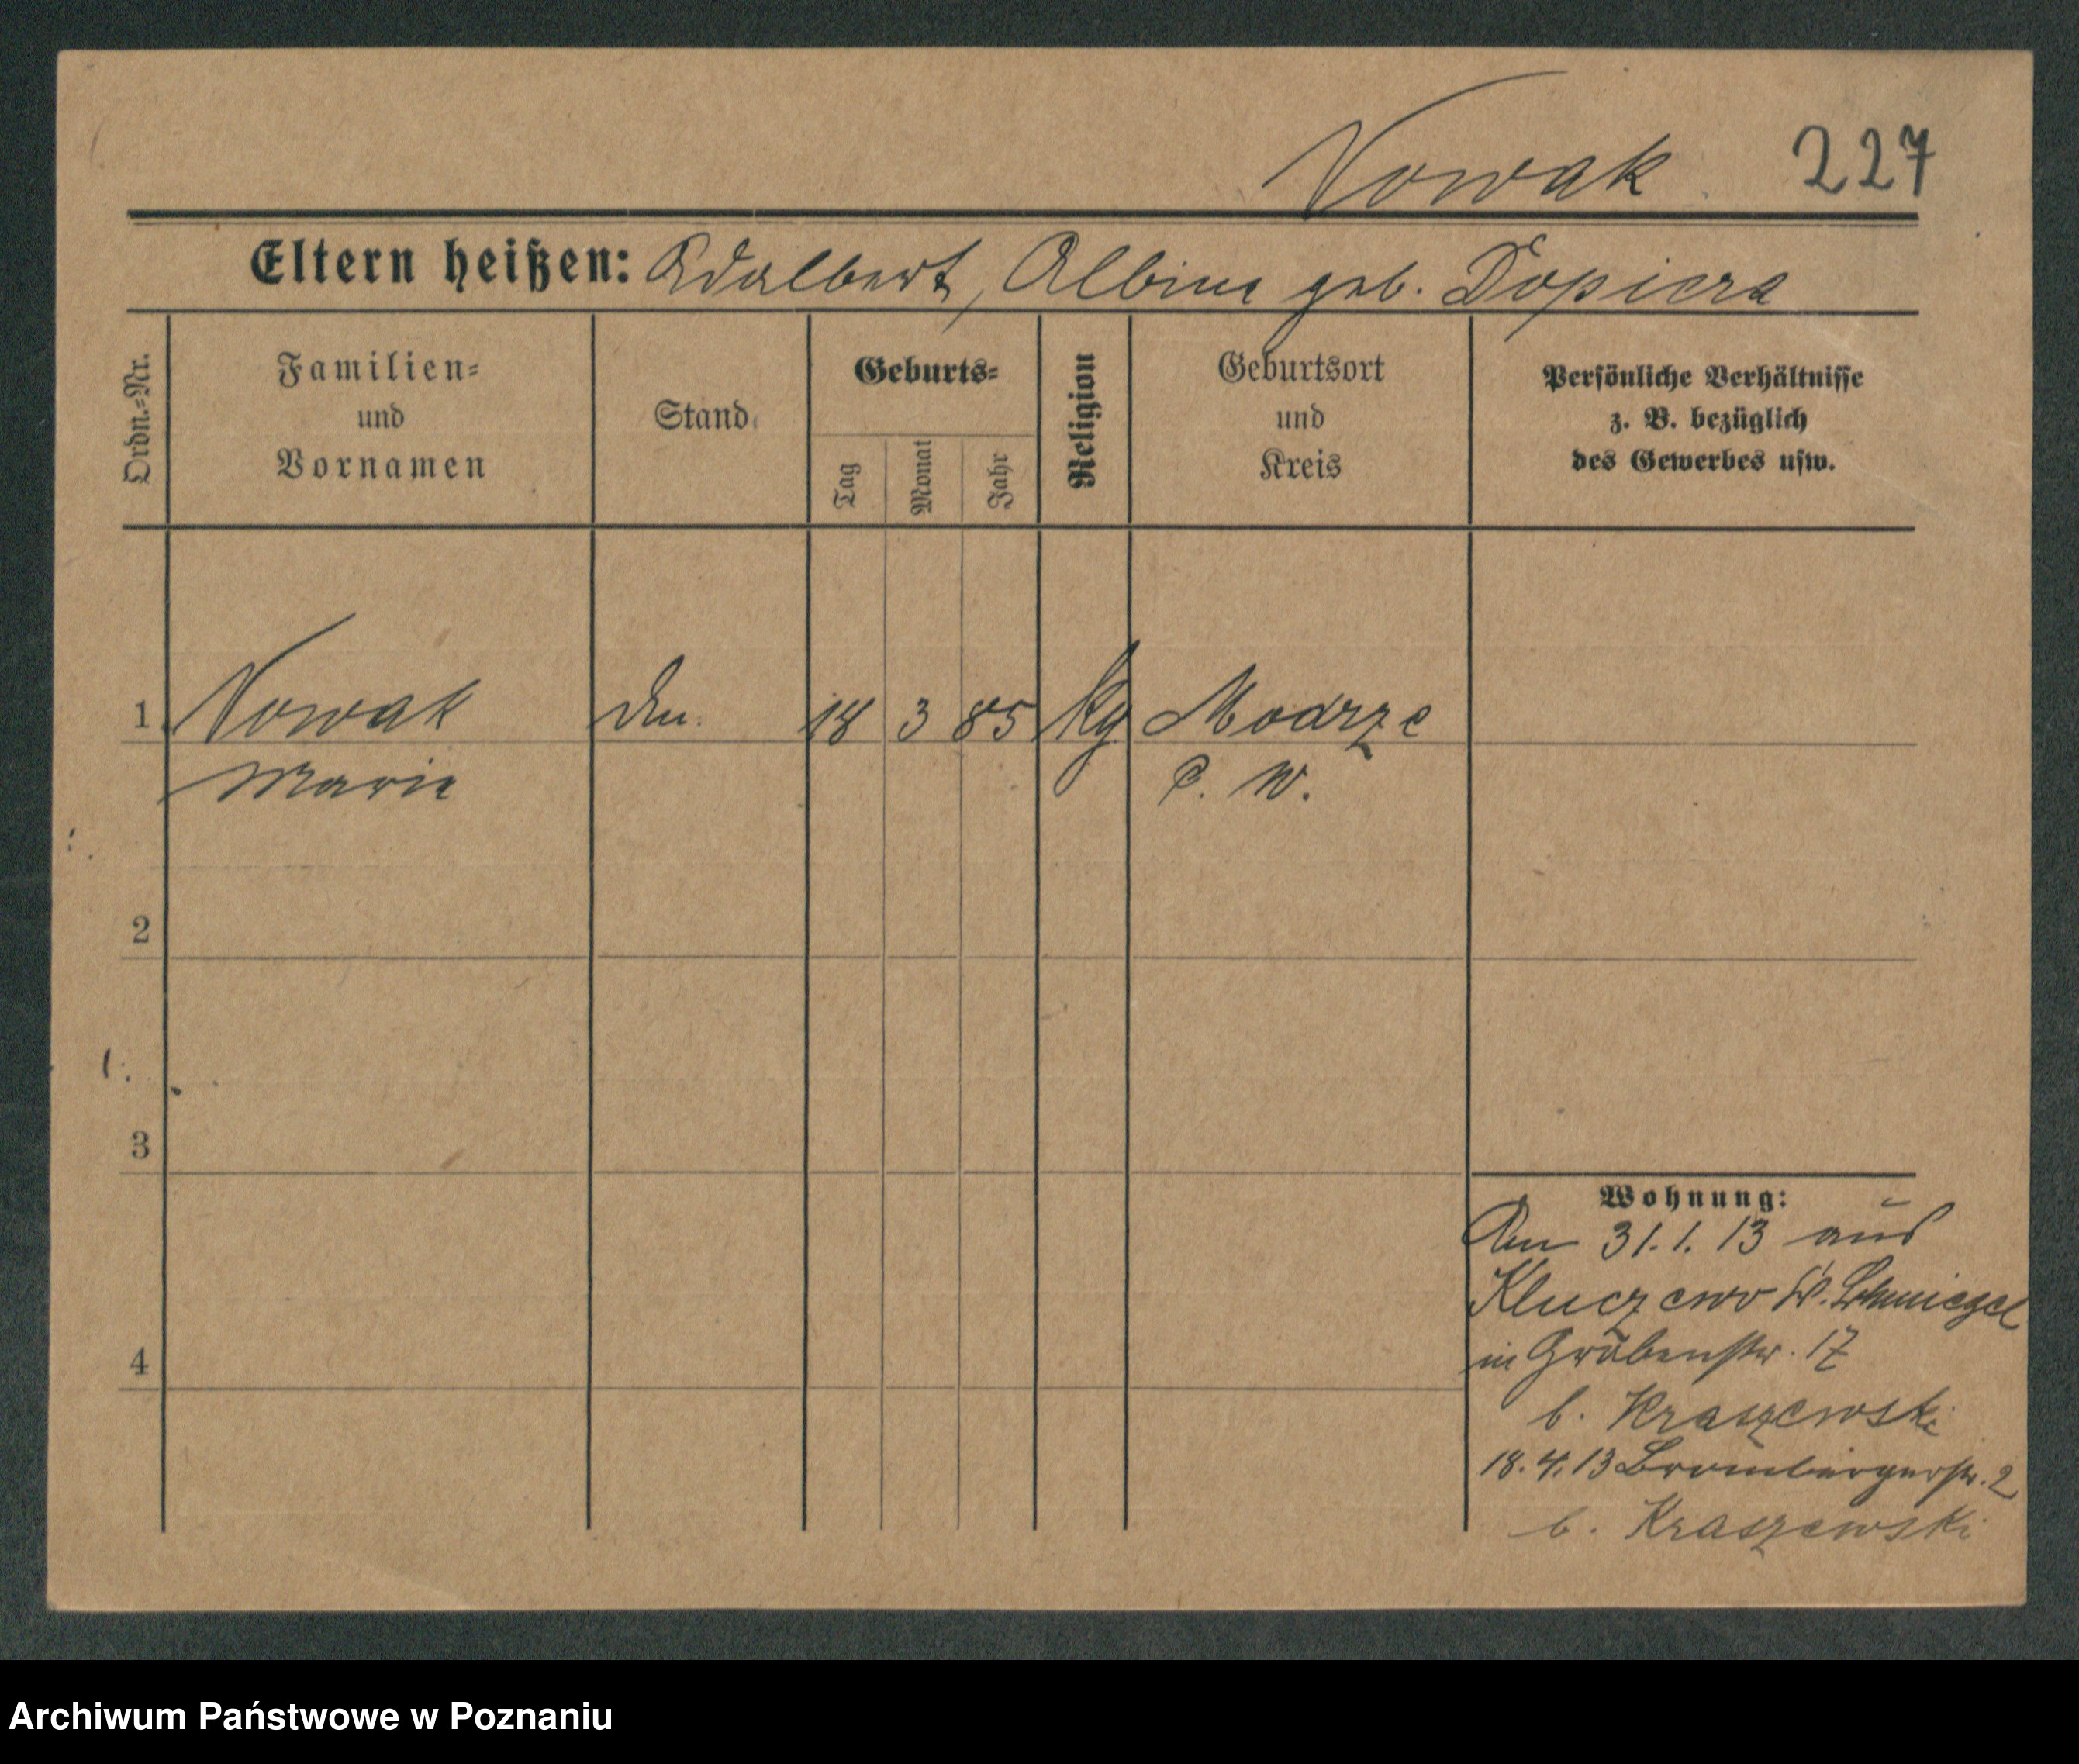 Nowak 227
Eltern heißen: Adalbert, Albine geb. Dopiera
Ordn.=Nr.
Familien=
und
Vornamen
Stand
Geburts=
Tag
Monat
Jahr
Religion
Geburtsort
und
Kreis
Persönliche Verhältnisse
z. B. bezüglich
des Gewerbes usw.
1 Nowak 18 3 85 Modrze
Marie P. W.
2
3
4
Wohnung:
31.1.13 aus
Kluczewo Schmiegel
in Grabenstr. 17
b. Kraszewski
18.4.13 Brombergerstr. 2
b. Kraszewski
Archiwum Państwowe w Poznaniu